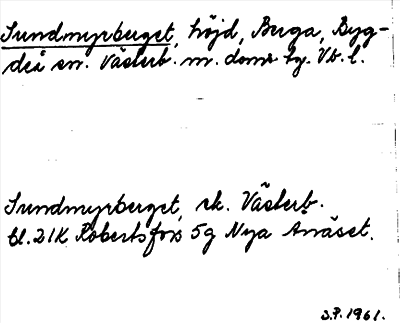 Sundmyrberget, höjd, Buga, Byg-
deå sn. Västerb. m. doms hg. Vb. l.
Sundmyrberget, ek. Västerb.
bl. 21K Robertsfors 5g Nya Ånäset.
S.P. 1961.